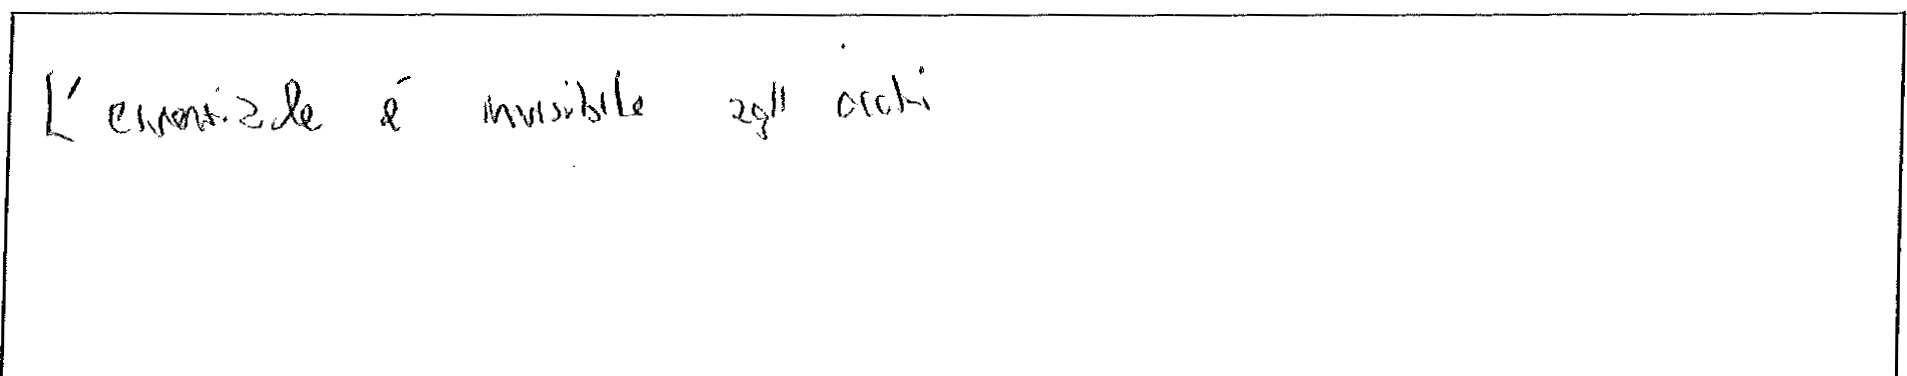 L'essenziale é invisibile agli occhi